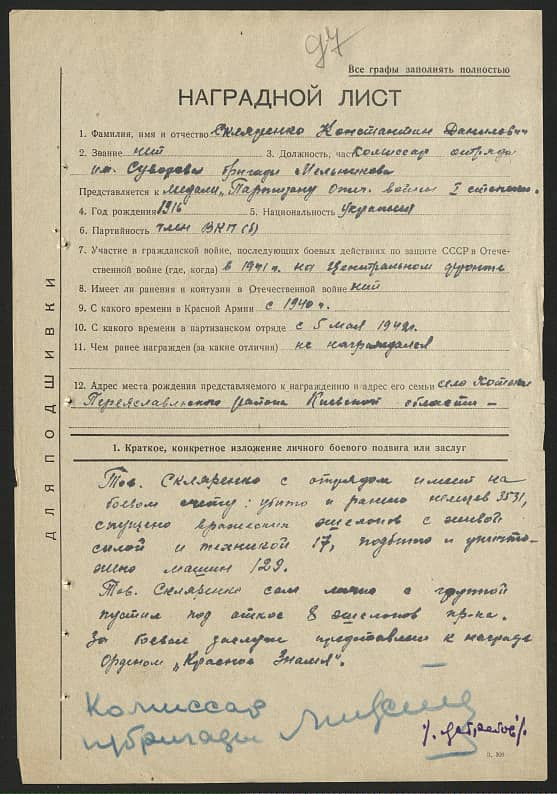 97
Все графы заполнять полностью
НАГРАДНОЙ ЛИСТ
1. Фамилия, имя и отчество Скляренко Константин Данилович
2. Звание нит 3. Должность, часть Комиссар отряда
им. Суворова бригады Мельникова
Представляется к медали „Партизану отеч. войны I степени.
4. Год рождения 1916 5. Национальность украинец
6. Партийность член ВКП(б)
7. Участие в гражданской войне, последующих боевых действиях по защите СССР в Отече-
ственной войне (где, когда) в 1941 г. на Центральном фронте
8. Имеет ли ранения и контузии в Отечественной войне нит
9. С какого времени в Красной Армии с 1940 г.
10. С какого времени в партизанском отряде с 5 мая 1942г.
11. Чем ранее награжден (за какие отличия) не награждался
12. Адрес места рождения представляемого к награждению и адрес его семьи село
Переяславльского района Киевской области —
1. Краткое, конкретное изложение личного боевого подвига или заслуг
Тов. Скляренко с отрядом имеет на
боевом счету: убито и ранено немцев 3531,
спущено вражеских эшелонов с живой
силой и техникой 17, подбито и уничто-
жено машин 129.
Тов. Скляренко сам лично с группой
пустил под откос 8 эшелонов пр-ка.
За боевые заслуги представлен к награде
Орденом „Красное Знамя".
Комиссар
п/бригады
З. 300
ДЛЯ ПОДШИВКИ